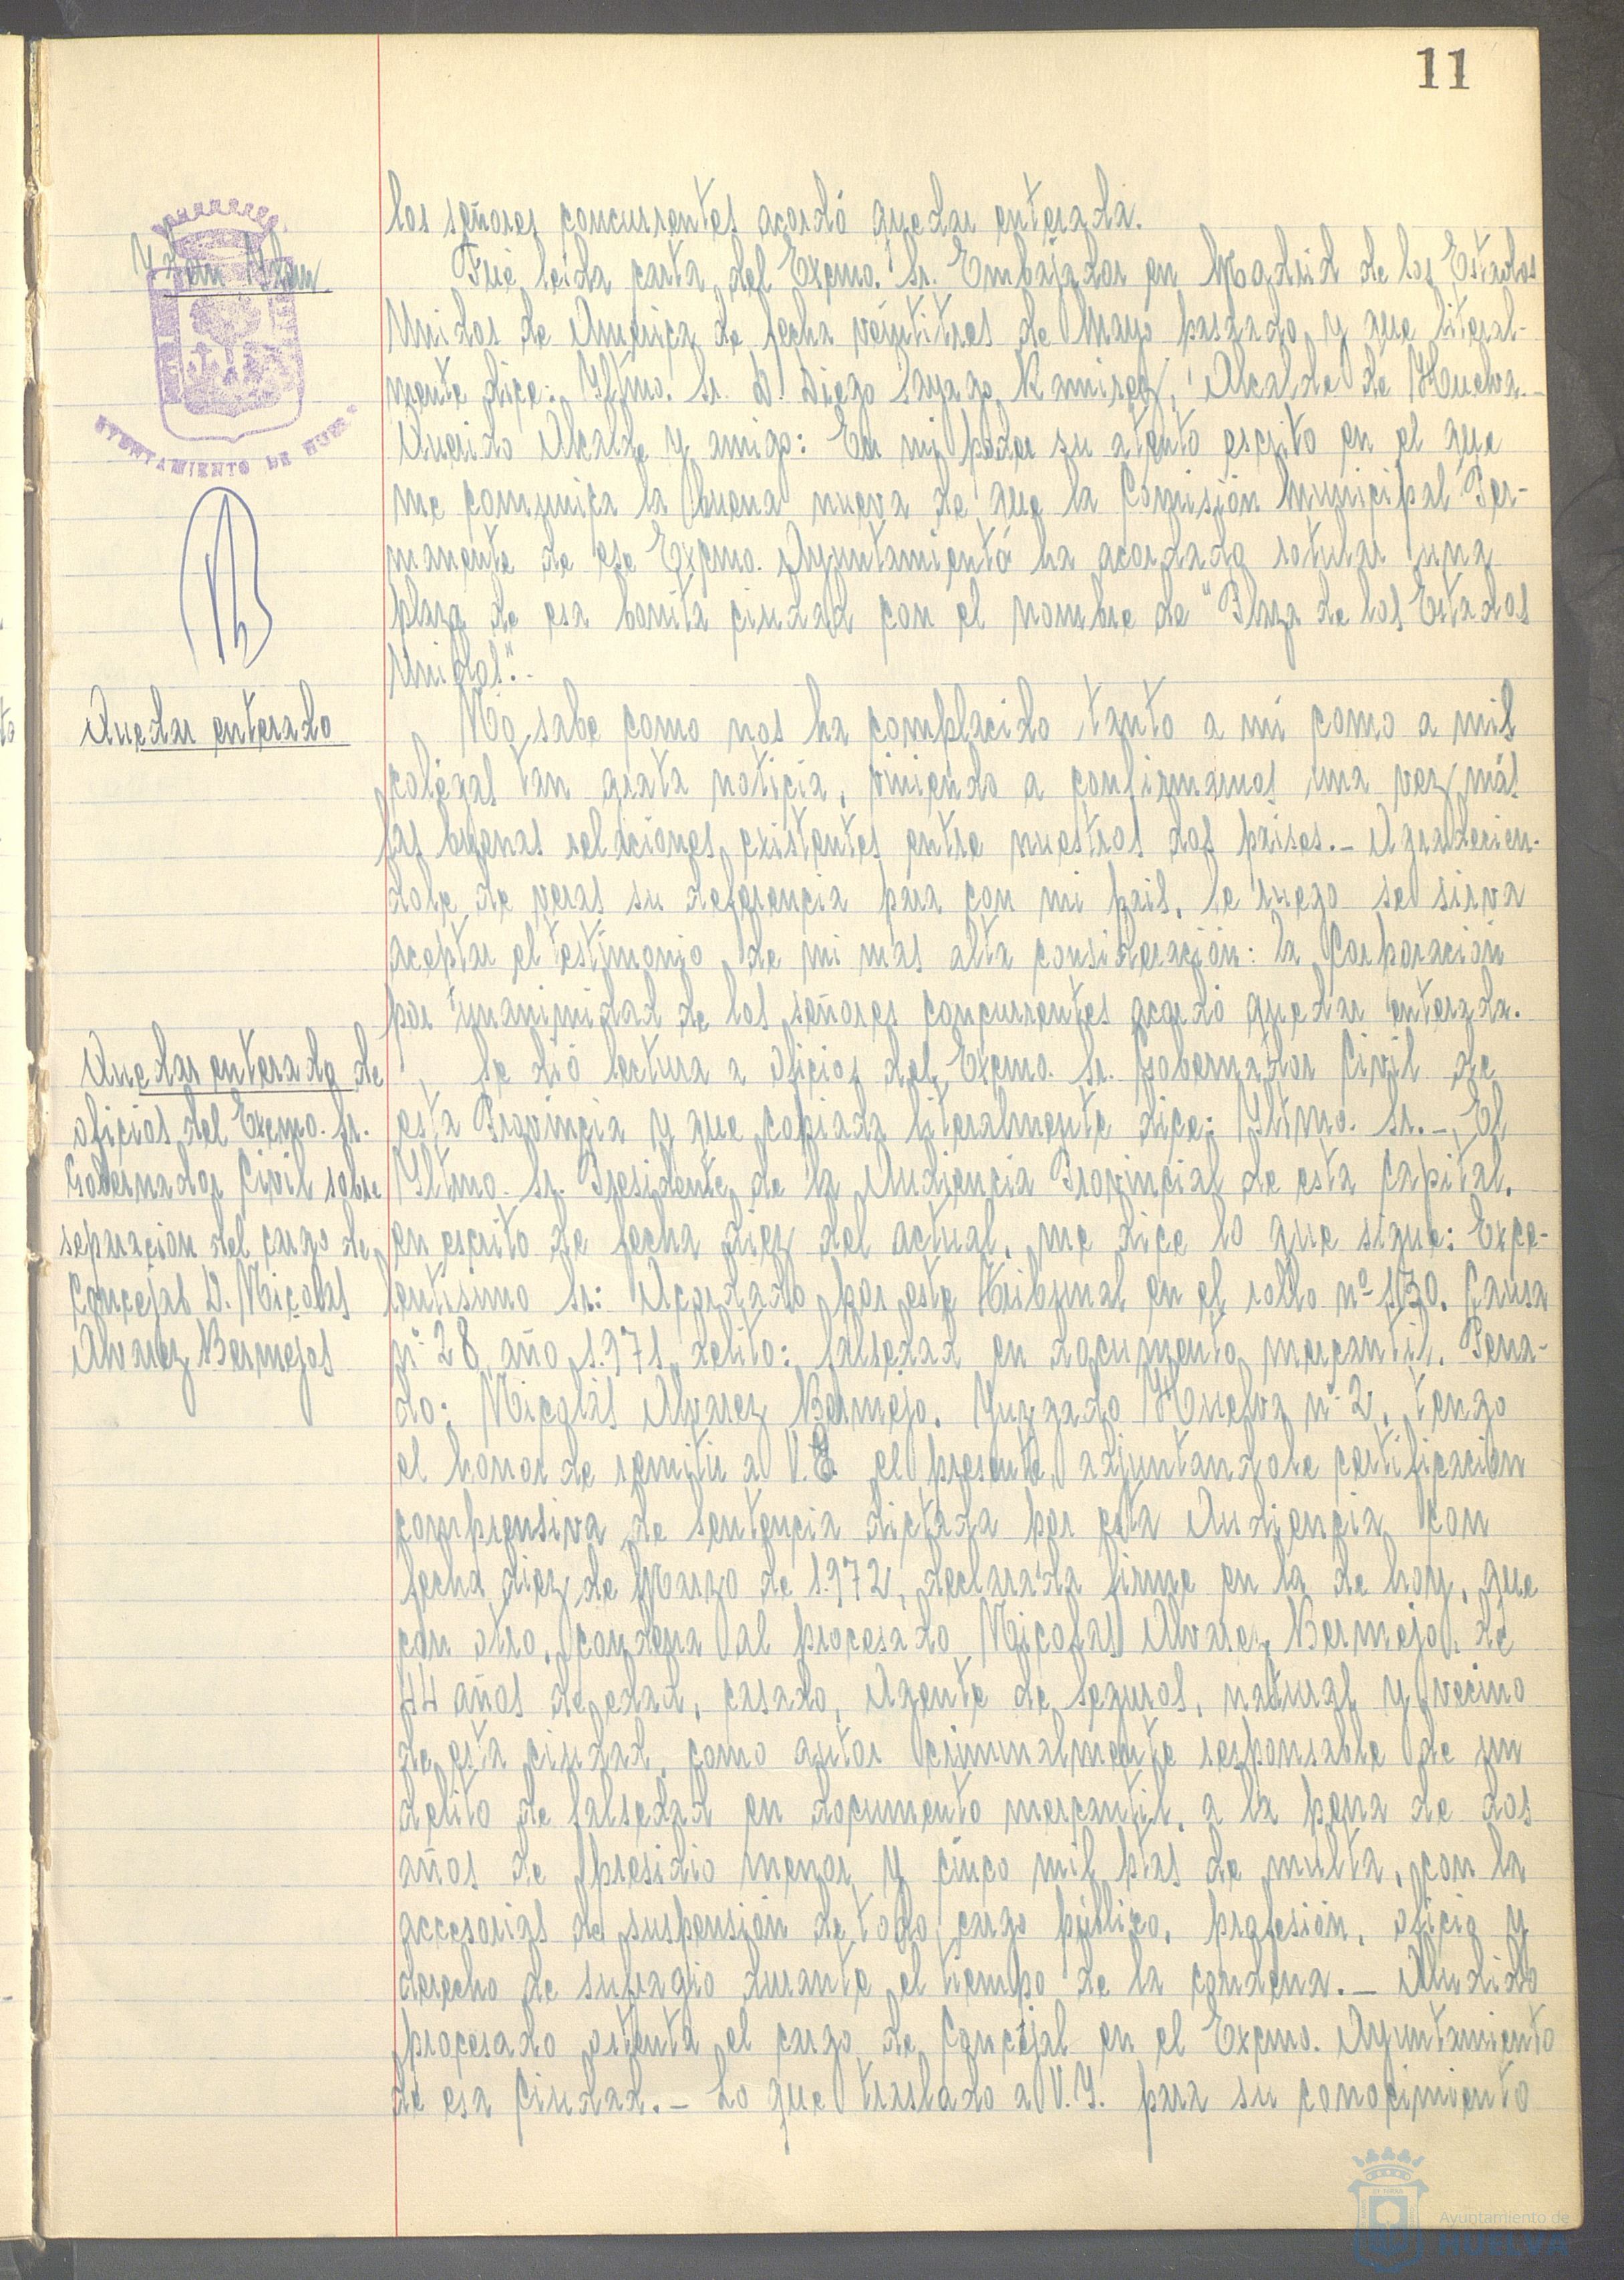 11
los señores concurrentes acordó quedar enterada.
Ydem Ydem
Fué leida carta del Excmo. Sr. Embajador en Madrid de los Estados
Unidos de America de fecha veintitres de Mayo pasado y que literal-
mente dice: Yltmo. Sr. D. Diego Sayago Ramirez, Alcalde de Huelva.-
Querido Alcalde y amigo: En mi poder su atento escrito en el que
me comunica la buena nueva de que la Comisión Municipal Per-
manente de ese Excmo. Ayuntamiento ha acordado rotular una
plaza de esa bonita ciudad con el nombre de "Plaza de los Estados
Unidos".-
AYUNTAMIENTO DE HUELVA
Quedar enterado
No sabe como nos ha complacido tanto a mi como a mis
colegas tan grata noticia, viniendo a confirmarnos una vez más
las buenas relaciones existentes entre nuestros dos paises.- Agradecien-
dole de veras su deferencia para con mi pais, le ruego se sirva
aceptar el testimonio de mi mas alta consideración: la Corporación
por unanimidad de los señores concurrentes acordó quedar enterada.
Quedar enterado de
oficios del Excmo. Sr.
Gobernador Civil sobre
separación del cargo de
Concejal D. Nicolas
Alvarez Bermejos
Se dió lectura a oficios del Excmo. Sr. Gobernador Civil de
esta Provincia y que copiada literalmente dice: Yltmo. Sr.- El
Yltmo. Sr. Presidente de la Audiencia Provincial de esta Capital,
en escrito de fecha diez del actual, me dice lo que sigue: Exce-
lentisimo Sr: Acordado por este Tribunal en el rollo nº 130. Causa
nº 28 año 1.971 delito: falsedad en documento mercantil. Pena-
do: Nicolás Alvarez Bermejo. Juzgado Huelva nº 2, tengo
el honor de remitir a V.E. el presente, adjuntandole certificación
comprensiva de sentencia dictada por esta Audiencia con
fecha diez de Marzo de 1.972, declarada firme en la de hoy, que
con otro, condena al procesado Nicolas Alvarez Bermejo, de
44 años de edad, casado, Agente de Seguros, natural y vecino
de esta ciudad, como autor criminalmente responsable de un
delito de falsedad en documento mercantil, a la pena de dos
años de presidio menor y cinco mil ptas de multa, con la
accesorias de suspensión de todo cargo público, profesión, oficio y
derecho de sufragio durante el tiempo de la condena.- Aludido
procesado ostenta el cargo de Concejal en el Excmo. Ayuntamiento
de esa Ciudad.- Lo que traslado a V.Y. para su conocimiento
Ayuntamiento de
HUELVA